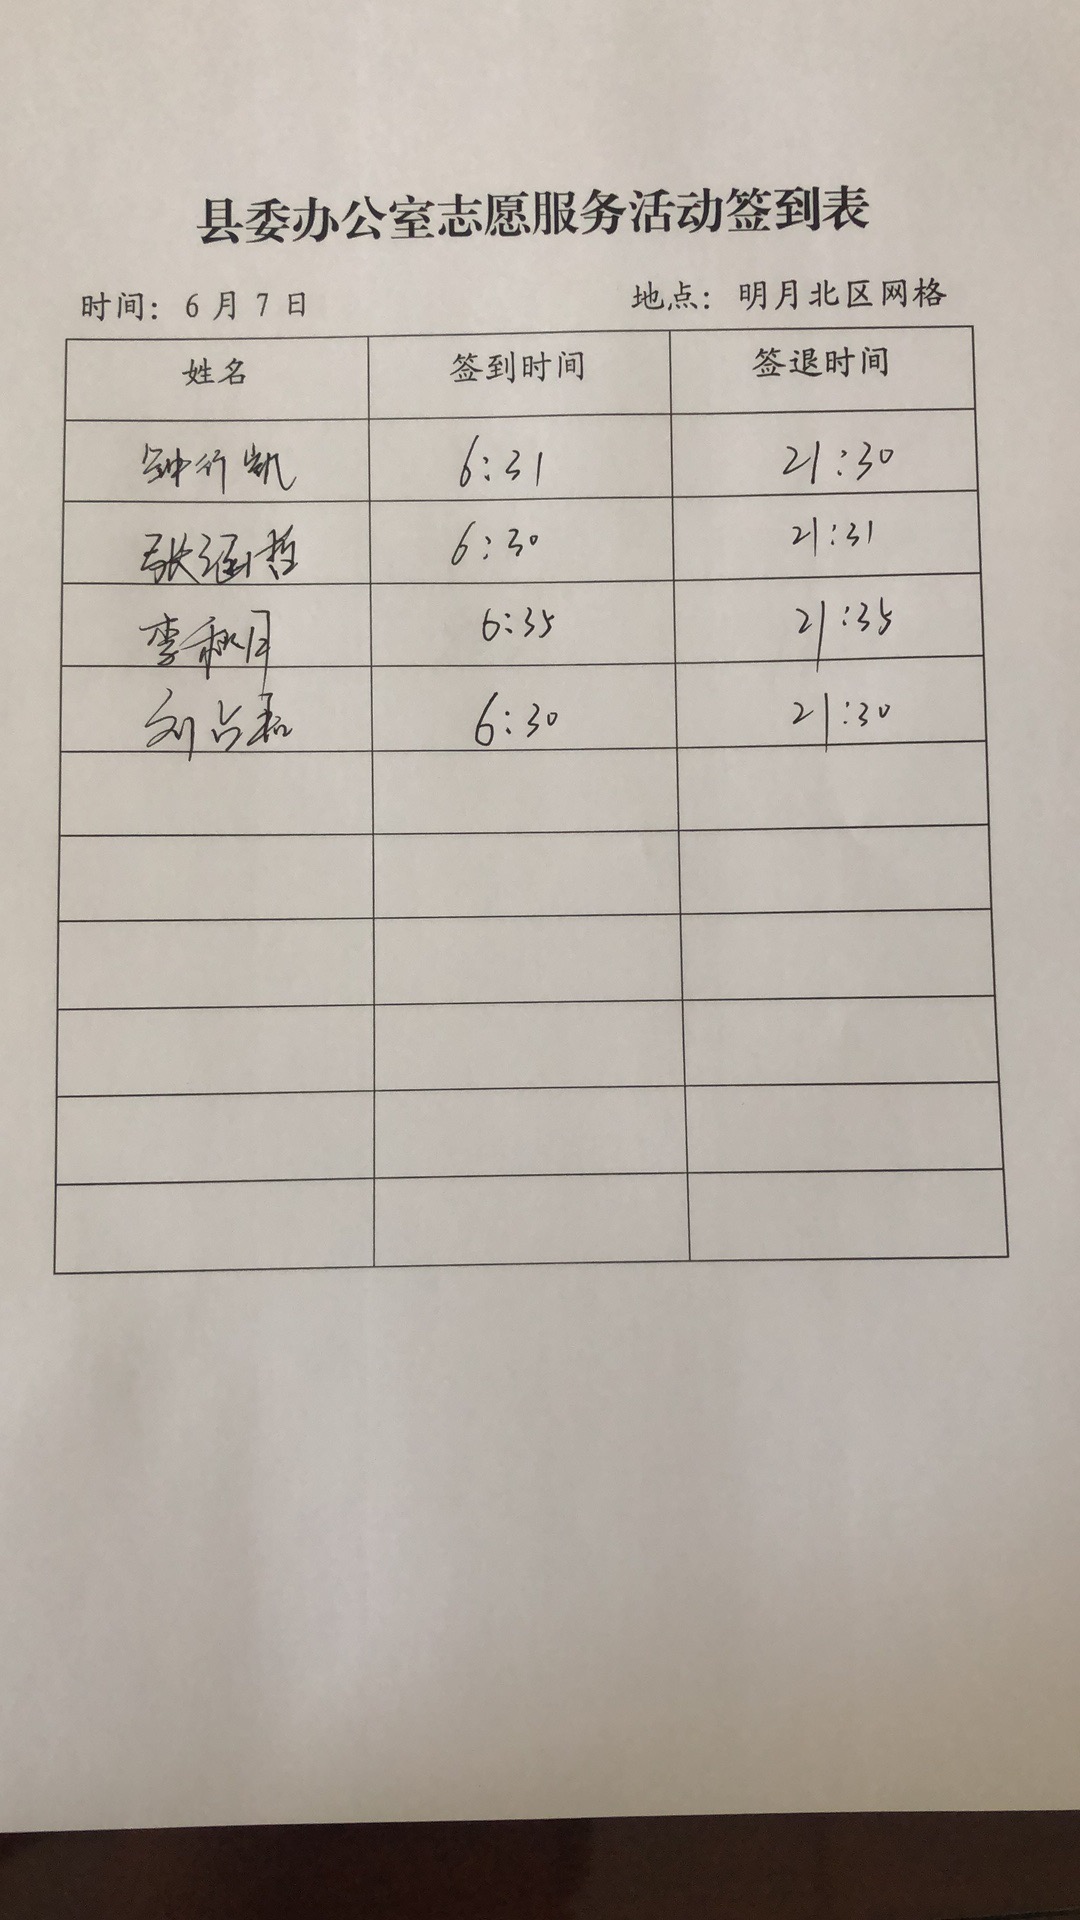 县委办公室志愿服务活动签到表
时间：6月7日 地点：明月北区网格
姓名 签到时间 签退时间
钟行凯 6:31 21:30
张涵哲 6:30 21:31
李秋月 6:35 21:35
刘占 6:30 21:30